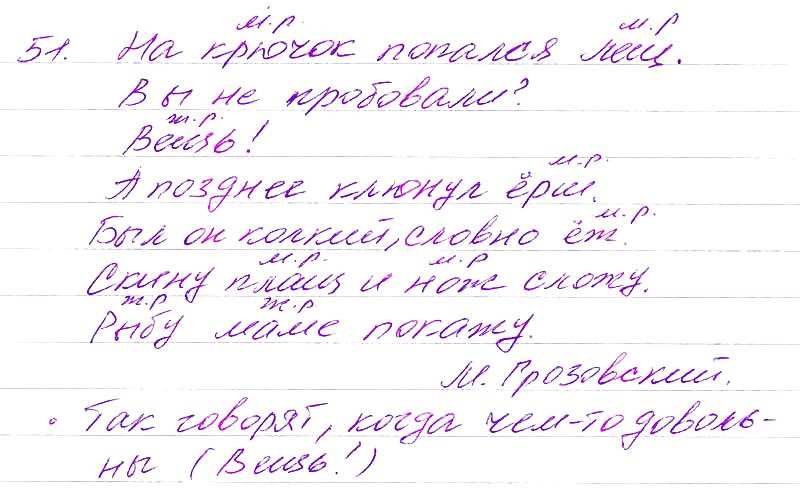 м.р. м.р
51. На крючок попался лещ.
Вы не пробовали?
ж.р.
Вещь!
м.р.
А позднее клюнул ёрш.
м.р.
Был он колкий, словно ёж.
м.р. м.р.
Скину плащ и нож сложу.
ж.р ж.р
Рыбу маме покажу.
М. Грозовский.
Так говорят, когда чем-то доволь-
ны (Вещь!)